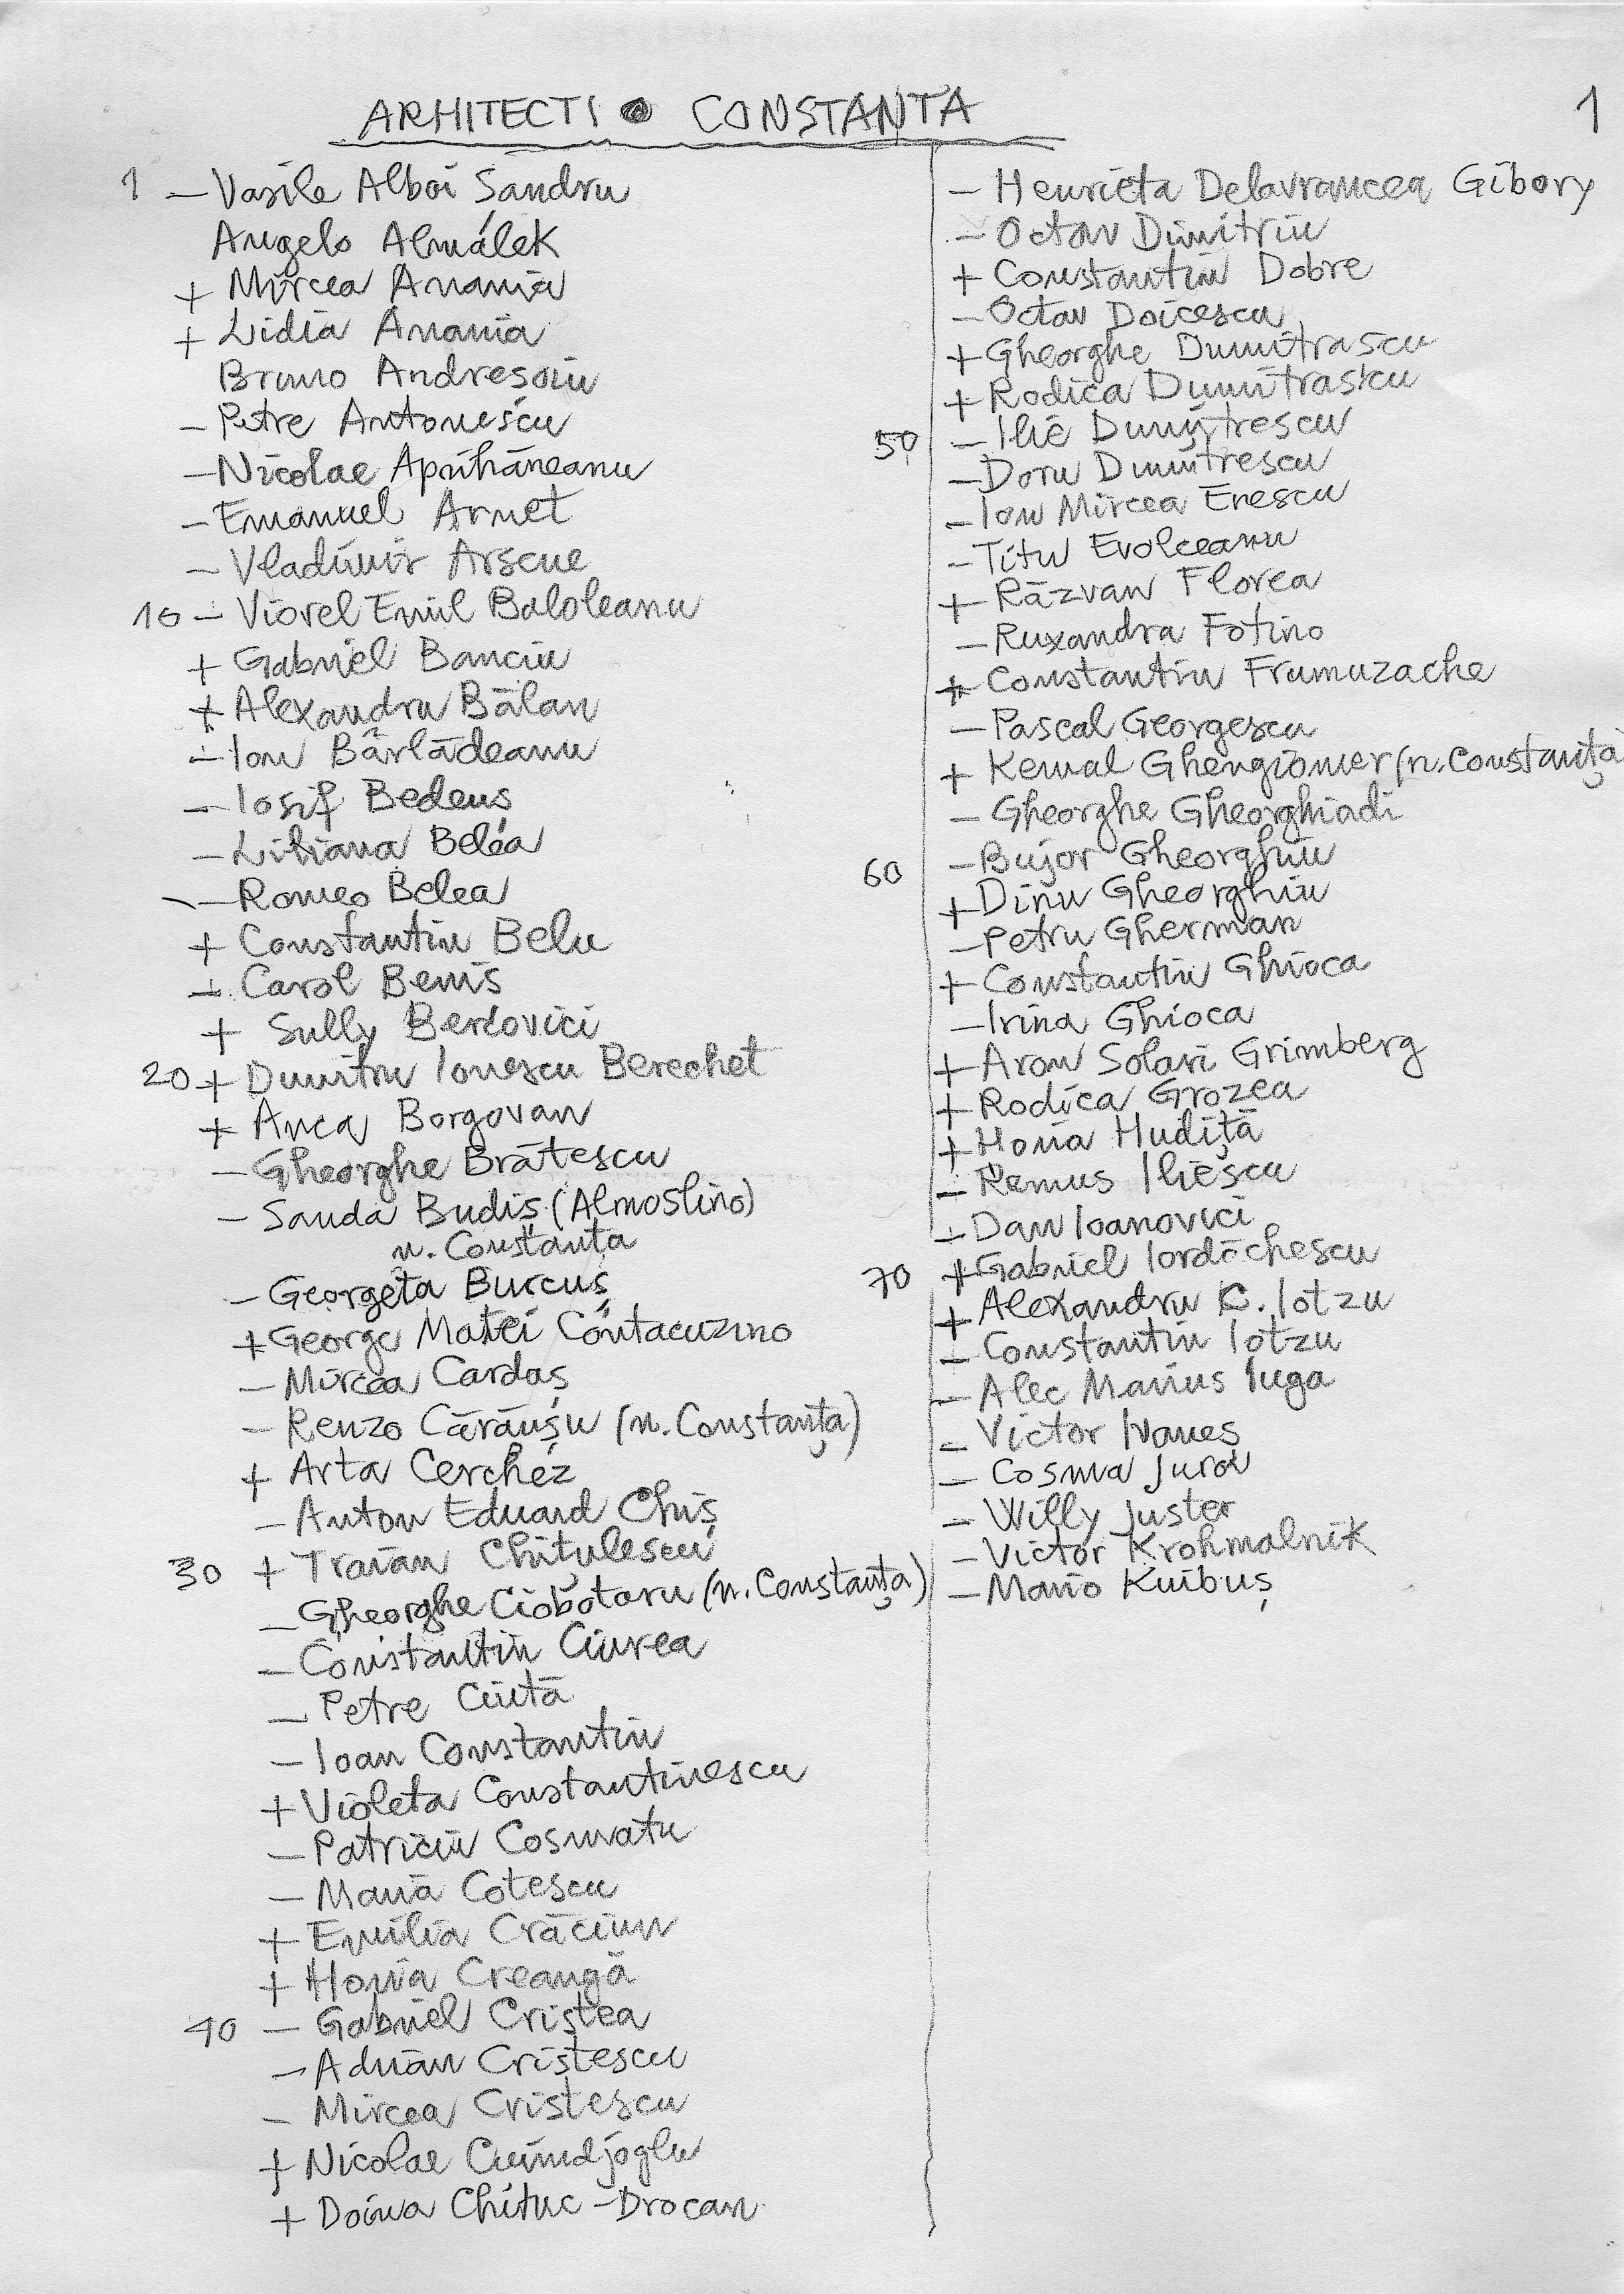 ARHITECTI CONSTANTA
1
1 — Vasile Alboi Șandru
Angelo Almálek
+ Mircea Anania
+ Lidia Anania
Bruno Andreșoiu
— Petre Antonescu
— Nicolae Aprihăneanu
— Emanuel Arnet
— Vladimir Arsene
10 — Viorel Emil Baloleanu
+ Gabriel Banciu
+ Alexandru Bălan
— Ion Bârlădeanu
— Iosif Bedeuș
— Liliana Belea
— Romeo Belea
+ Constantin Belu
+ Carol Benis
+ Sully Bercovici
20 + Dumitru Ionescu Berechet
+ Anca Borgovan
— Gheorghe Brătescu
— Sanda Budiș (Almoslino)
n. Constanța
— Georgeta Burcuș
+ George Matei Cantacuzino
— Mircea Cardaș
— Renzo Cărăușu (n. Constanța)
+ Arta Cerchez
— Anton Eduard Chiș
30 + Traian Chițulescu
— Gheorghe Ciobotaru (n. Constanța)
— Constantin Ciurea
— Petre Ciută
— Ioan Constantin
+ Violeta Constantinescu
— Patriciu Cosmatu
— Maria Cotescu
+ Emilia Crăciun
+ Horia Creangă
40 — Gabriel Cristea
— Adrian Cristescu
— Mircea Cristescu
+ Nicolae Cuiumdjoglu
+ Doina Chituc-Drocan
— Henrieta Delavrancea Gibory
— Octav Dimitriu
+ Constantin Dobre
— Octav Doicescu
+ Gheorghe Dumitrascu
+ Rodica Dumitrascu
50 — Ilie Dumitrescu
— Doru Dumitrescu
— Ion Mircea Enescu
— Titu Evolceanu
+ Răzvan Florea
— Ruxandra Fotino
+ Constantin Frumuzache
— Pascal Georgescu
+ Kemal Ghengiomer (n. Constanța)
— Gheorghe Gheorghiadi
60 — Bujor Gheorghiu
+ Dinu Gheorghiu
— Petru Gherman
+ Constantin Ghioca
— Irina Ghioca
+ Aron Solari Grimberg
+ Rodica Grozea
+ Horia Hudiță
— Remus Iliescu
— Dan Ioanovici
70 + Gabriel Iordăchescu
+ Alexandru C. Iotzu
— Constantin Iotzu
— Alec Marius Iuga
— Victor Ivaneș
— Cosma Jurov
— Willy Juster
— Victor Krohmalnik
— Mario Kuibuș